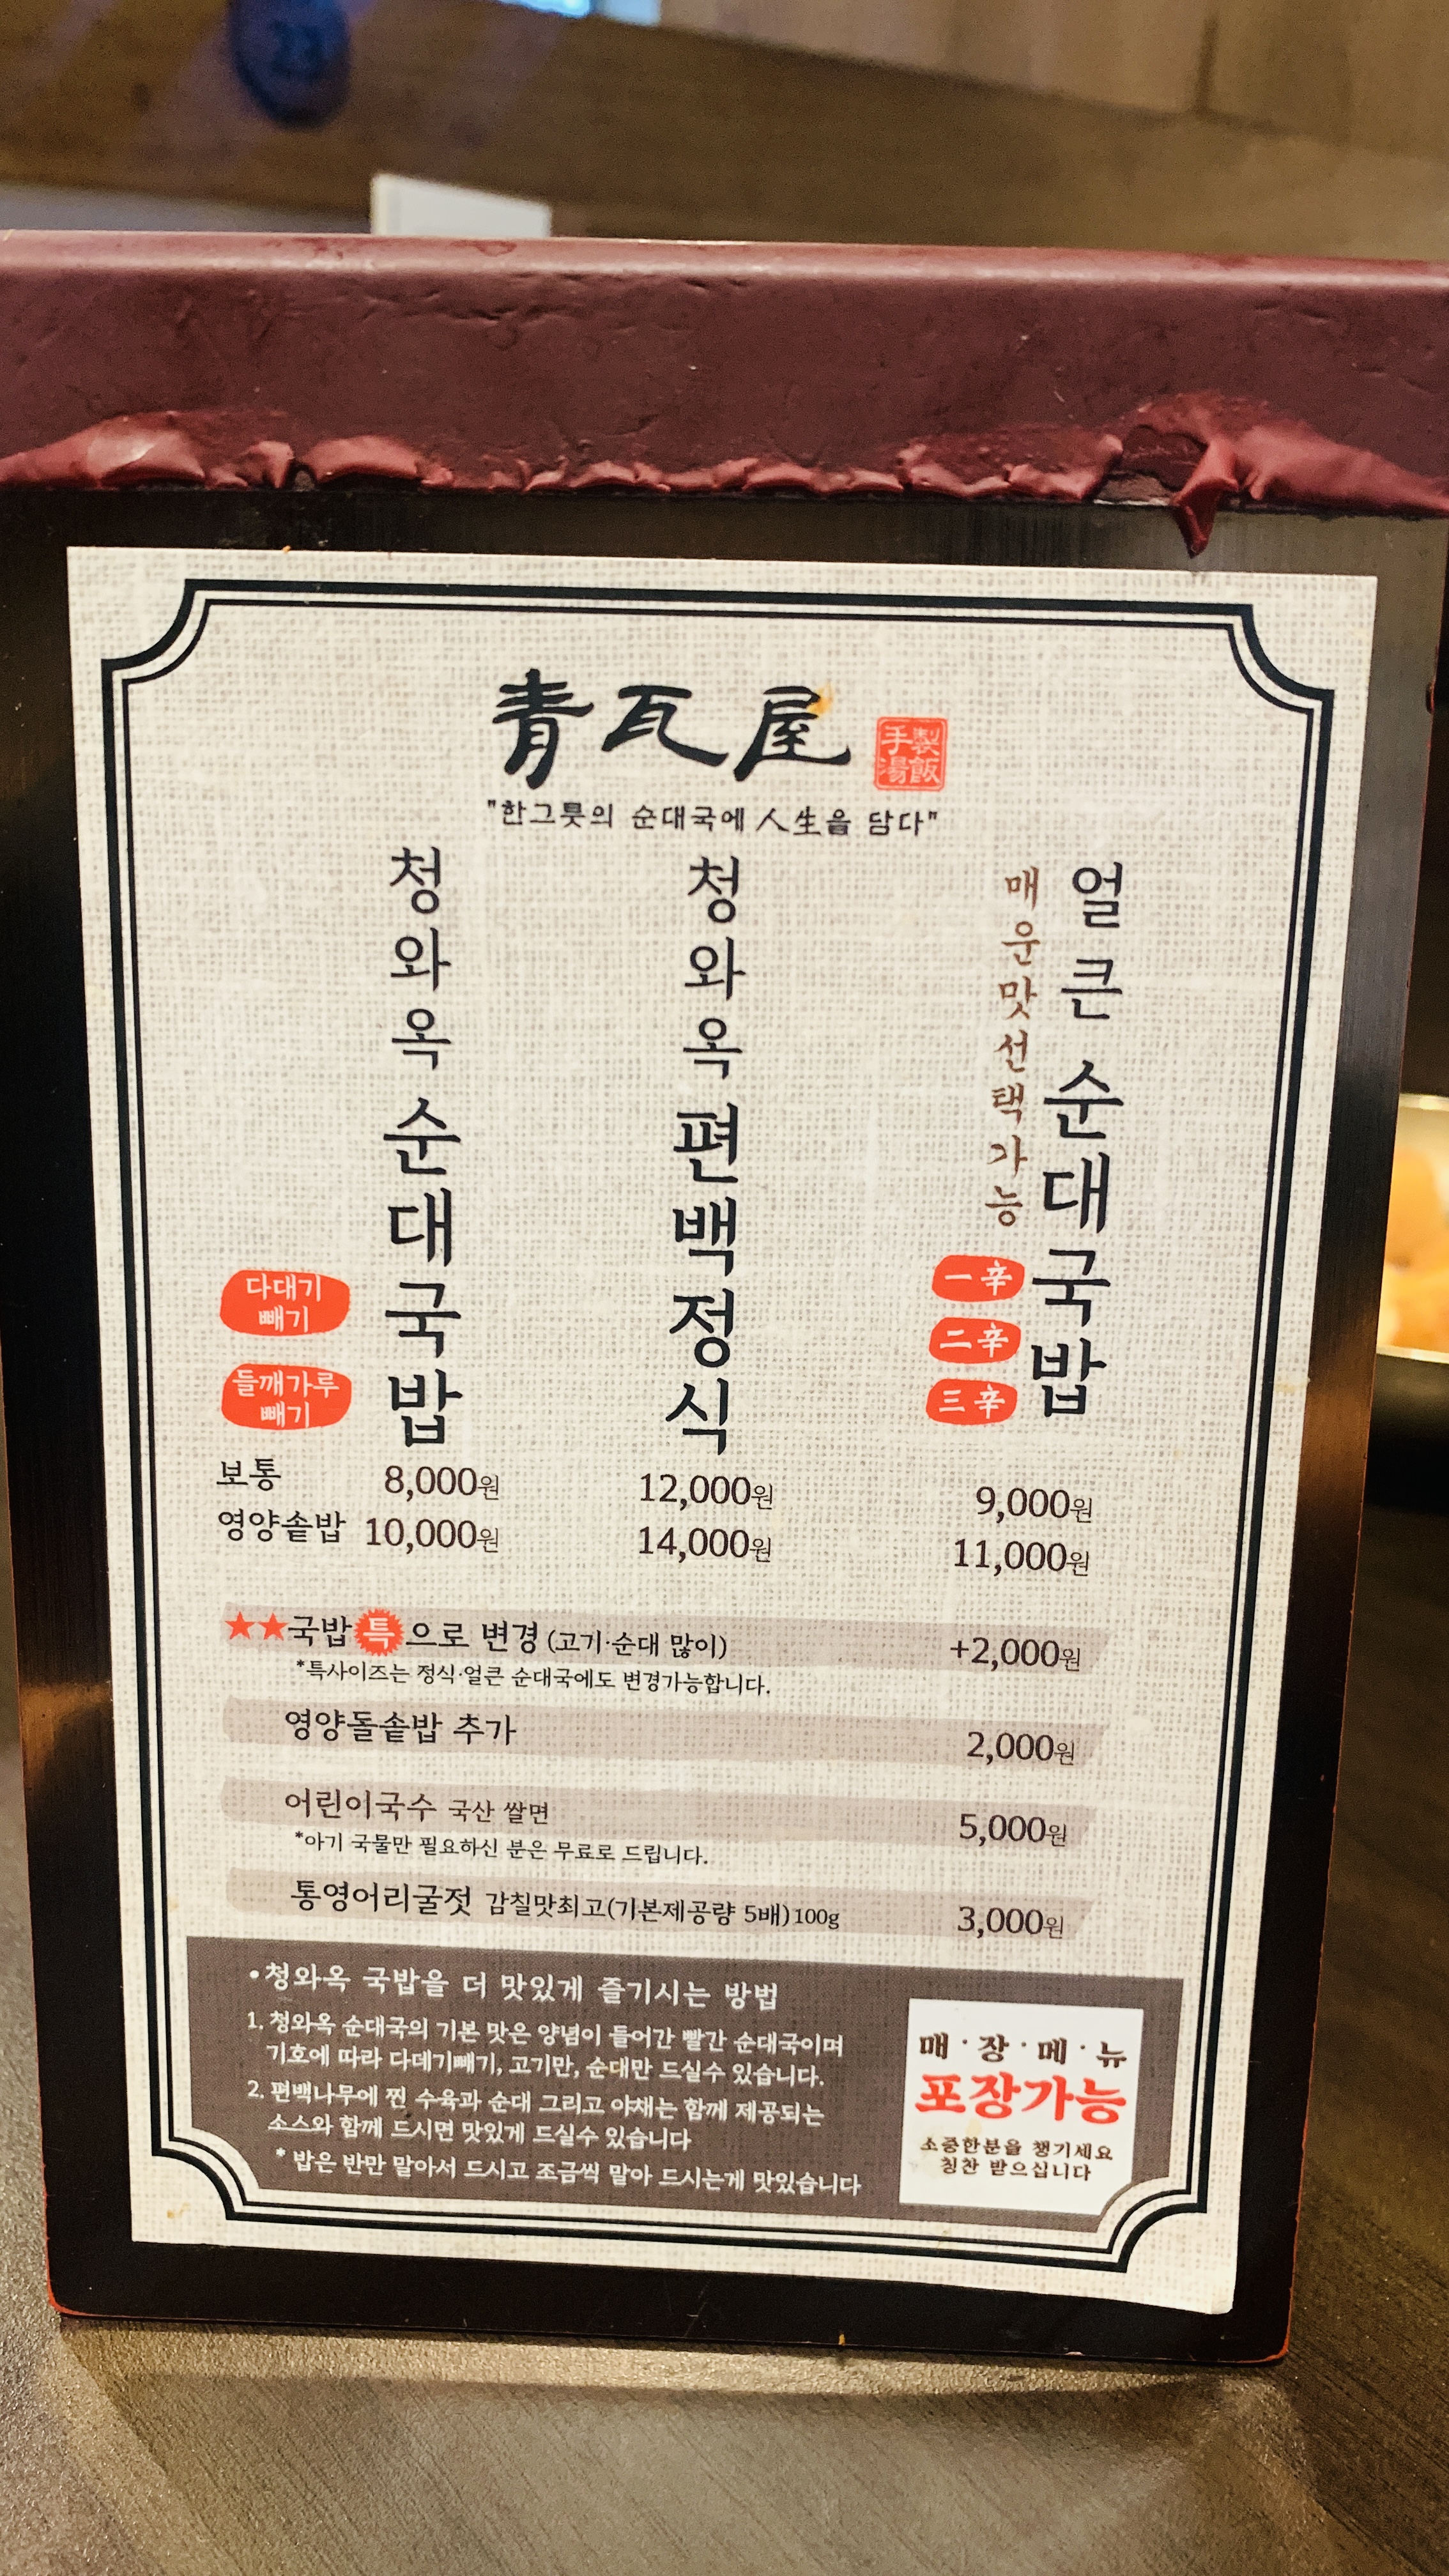 青瓦屋
手製
湯飯
"한그릇의 순대국에 人生을 담다"
청와옥 순대국밥
다대기
빼기
들깨가루
빼기
청와옥 편백정식
얼큰 순대국밥
매운맛선택가능
一辛
二辛
三辛
보통 8,000원 12,000원 9,000원
영양솥밥 10,000원 14,000원 11,000원
★★국밥 특 으로 변경 (고기·순대 많이) +2,000원
*특사이즈는 정식·얼큰 순대국에도 변경가능합니다.
영양돌솥밥 추가 2,000원
어린이국수 국산 쌀면 5,000원
*아기 국물만 필요하신 분은 무료로 드립니다.
통영어리굴젓 감칠맛최고(기본제공량 5배)100g 3,000원
•청와옥 국밥을 더 맛있게 즐기시는 방법
1. 청와옥 순대국의 기본 맛은 양념이 들어간 빨간 순대국이며
기호에 따라 다데기빼기, 고기만, 순대만 드실수 있습니다.
2. 편백나무에 찐 수육과 순대 그리고 야채는 함께 제공되는
소스와 함께 드시면 맛있게 드실수 있습니다
* 밥은 반만 말아서 드시고 조금씩 말아 드시는게 맛있습니다
매·장·메·뉴
포장가능
소중한분을 챙기세요
칭찬 받으십니다